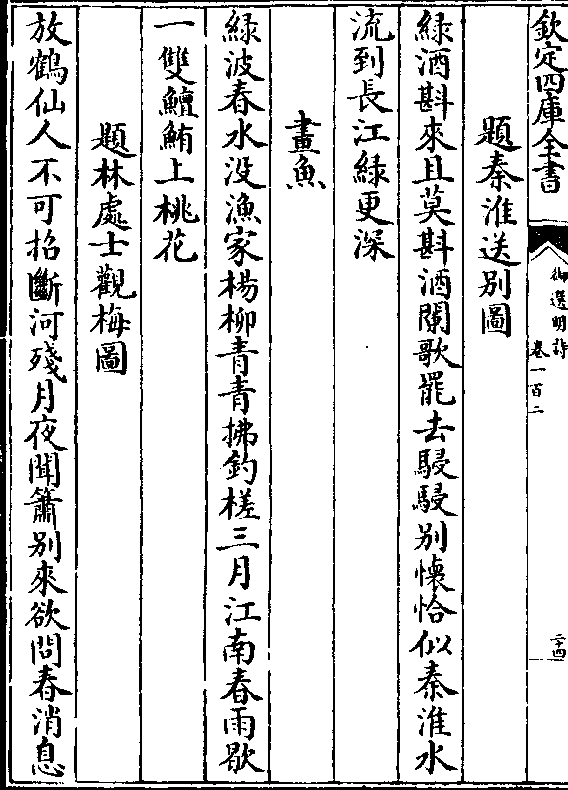 欽定四庫全書
御選明詩
卷一百二
二十四
題秦淮送別圖
緑酒斟來且莫斟酒闌歌罷去駸駸別懷恰似秦淮水
流到長江緑更深
畫魚
緑波春水没漁家楊柳青青拂釣槎三月江南春雨歇
一雙鱣鮪上桃花
題林處士觀梅圖
放鶴仙人不可招斷河殘月夜聞簫別來欲問春消息